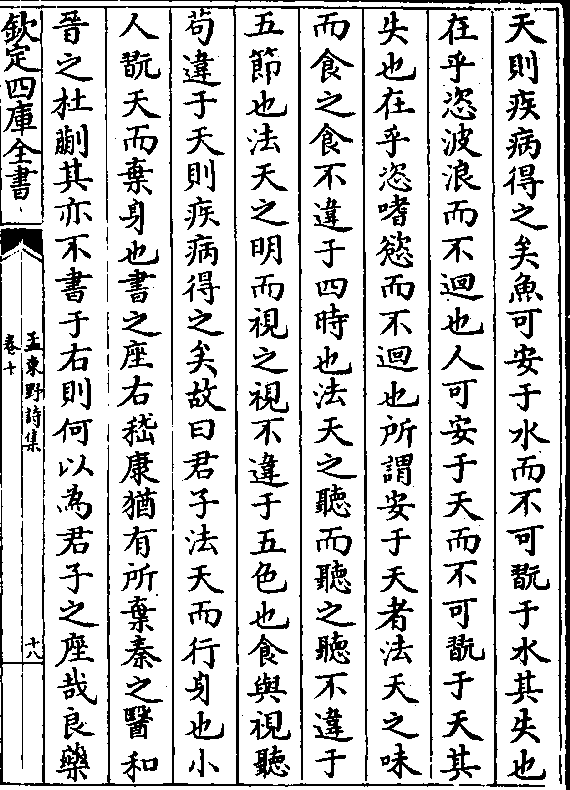 天則疾病得之矣魚可安于水而不可翫于水其失也
在乎恣波浪而不迴也人可安于天而不可翫于天其
失也在乎恣嗜慾而不迴也所謂安于天者法天之味
而食之食不違于四時也法天之聽而聽之聽不違于
五節也法天之明而視之視不違于五色也食與視聽
苟違于天則疾病得之矣故曰君子法天而行身也小
人翫天而棄身也書之座右嵇康猶有所棄秦之醫和
晉之杜蒯其亦不書于右則何以為君子之座哉良藥
欽定四庫全書
孟東野詩集
卷十
十八